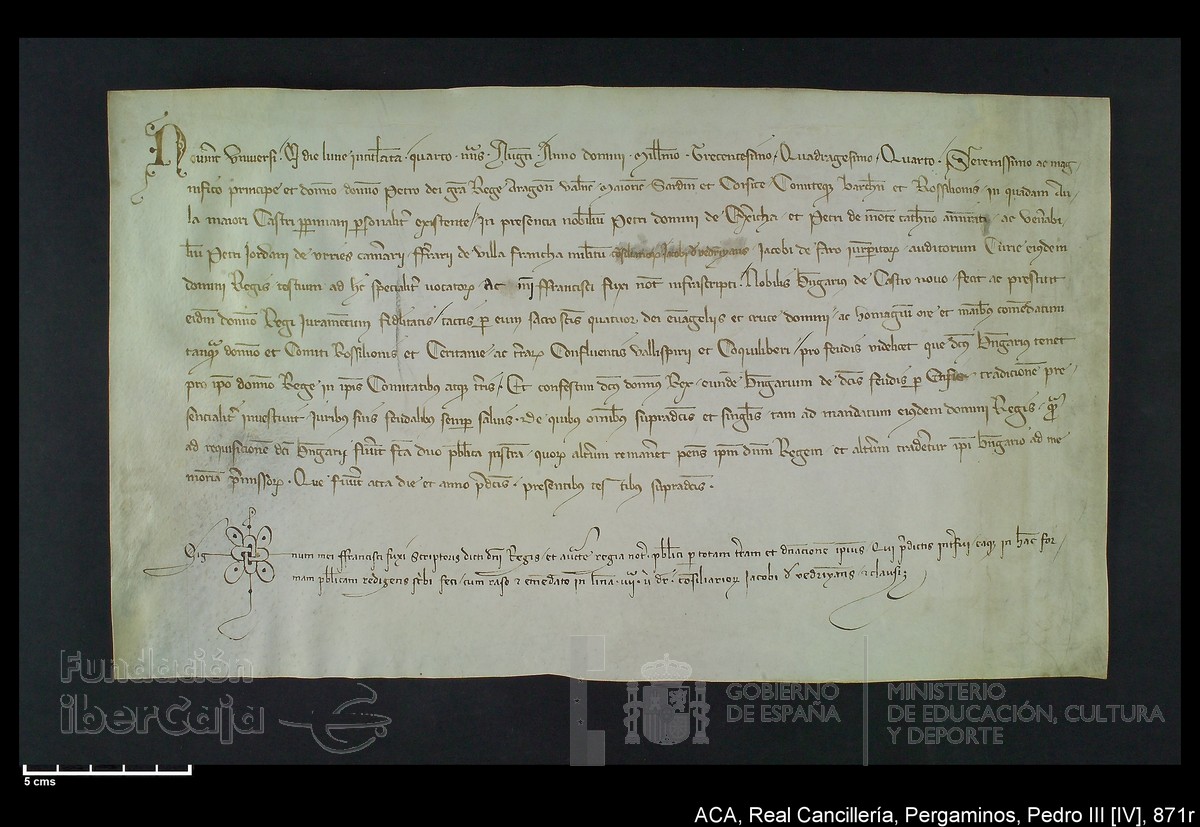 Noverint Universi. Q die lune intitulata. quarto. nūs. Augusti. Anno domini. Millīmo. Trecentesimo. Quadragesimo. Quarto. Serenissimo ac mag
nifico principe et domno domno Petro dei grā Rege Aragon Valnē Maioric Sardin et Corsice Comiteq barchn et Rossilionis in quadam Au
la maiori Castri ppiniani psonalit existente / In presencia nobiliū Petri domini de Exericha. et Petri de monte cathno ac venabi
liū Petri Jordani de urries camarii. ffrarii de villa francha militū consiliariorp Jacobi de vedriyanis Jacobi de Faro iurpitorp. auditorum Curie eiusdem
domini Regis testium ad hc specialit vocatorp. Ac mī ffrancisci fuxi not infrascripti. Nobilis bngarius de Castro novo. fecit ac prestitit
eidm domno Regi Juramentum fidelitatis / tactis p eum sacro sctis quatuor dei evāgeliis et cruce domini. ac homagiū ore et manibus comēdatum
tanq domno et Comiti Rossilionis et Ceritanie ac trarp Confluentis vallispirii et Coquiliberi / pro feudis videlicet que dcus bngarius tenet
pro ipo domno Rege in ipis Comitatibus atq tris. Et confestim dcus domnus Rex. eundē bngarum de dcis feudis p tradicionē pre
sencialit investivit. Juribus suis feudalibus semp salvis. De quibus omibus supradcis et singlis tam ad mandatum eiusdem domini Regis. q
ad requisicionē dci bngarii fiūt fcta duo pblica instra. quorp altrum remanet penes ipm dnm Regem. et altrum tradetur ipi bngario ad me
moriā pmissorp. Que fiūt acta die et anno pdcis. presentibus testibus supradcis.
Sig num mei ffrancisci fuxi scriptoris dicti dni Regis. et aucte regia not pblici p totam tram et dnacione ipius Qui pdictis intfui eaq in hāc for
mam pblicam redigens scbi feci / cum raso et emēdato in linea. iiii. u dr. consiliariorp Jacobi d vedriyanis. et clausi
5 cms
Fundación
iberCaja
GOBIERNO
DE ESPAÑA
MINISTERIO
DE EDUCACIÓN, CULTURA
Y DEPORTE
ACA, Real Cancillería, Pergaminos, Pedro III [IV], 871r